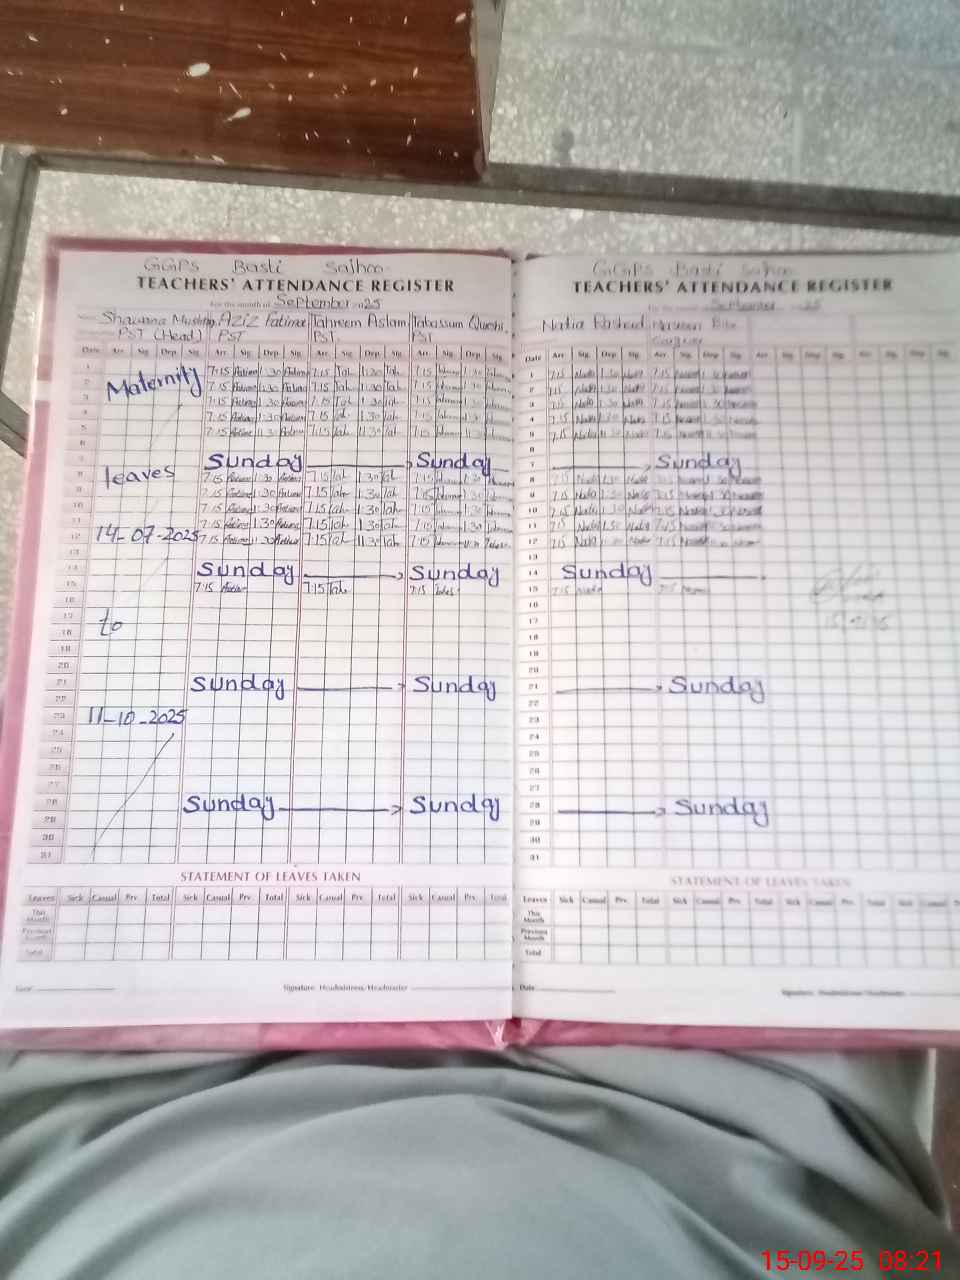 GGPS Basti Sajhoo
TEACHERS' ATTENDANCE REGISTER
For the month of September 2025
Shawana Mushtaq Aziz Fatima Tahreem Aslam Tabassum Qureshi
PST (Head) PST PST PST
Date Arr. Sig. Dep. Sig. Arr. Sig. Dep. Sig. Arr. Sig. Dep. Sig. Arr. Sig. Dep. Sig.
1 7:15 Fatima 1:30 Fatima 7:15 Tah 1:30 Tah 7:15 1:30
2 Maternity 7:15 Fatima 1:30 Fatima 7:15 Tah 1:30 Tah 7:15 1:30
3 7:15 Fatima 1:30 Fatima 7:15 Tah 1:30 Tah 7:15 1:30
4 7:15 Fatima 1:30 Fatima 7:15 Tah 1:30 Tah 7:15 1:30
5 7:15 Fatima 1:30 Fatima 7:15 Tah 1:30 Tah 7:15 1:30
6
7 Sunday Sunday
8 leaves 7:15 Fatima 1:30 Fatima 7:15 Tah 1:30 Tah 7:15 1:30
9 7:15 Fatima 1:30 Fatima 7:15 Tah 1:30 Tah 7:15 1:30
10 7:15 Fatima 1:30 Fatima 7:15 Tah 1:30 Tah 7:15 1:30
11 7:15 Fatima 1:30 Fatima 7:15 Tah 1:30 Tah 7:15 1:30
12 14-07-2025 7:15 Fatima 1:30 Fatima 7:15 Tah 1:30 Tah 7:15 1:30
13
14 Sunday Sunday
15 7:15 Fatima 7:15 Tah 7:15
16
17 to
18
19
20
21 Sunday Sunday
22
23 11-10-2025
24
25
26
27
28 Sunday Sunday
29
30
31
STATEMENT OF LEAVES TAKEN
Leaves Sick Casual Prv. Total Sick Casual Prv. Total Sick Casual Prv. Total Sick Casual Prv. Total
This Month
Previous Month
Total
Date Signature Headmistress/Headmaster
GGPS Basti Sajhoo
TEACHERS' ATTENDANCE REGISTER
For the month of September 2025
Nadia Rasheed
Date Arr. Sig. Dep. Sig. Arr. Sig. Dep. Sig. Arr. Sig. Dep. Sig. Arr. Sig. Dep. Sig.
1 7:15 Nadia 1:30 Nadia 7:15 1:30
2 7:15 Nadia 1:30 Nadia 7:15 1:30
3 7:15 Nadia 1:30 Nadia 7:15 1:30
4 7:15 Nadia 1:30 Nadia 7:15 1:30
5 7:15 Nadia 1:30 Nadia 7:15 1:30
6
7 Sunday
8 7:15 Nadia 1:30 Nadia 7:15 1:30
9 7:15 Nadia 1:30 Nadia 7:15 1:30
10 7:15 Nadia 1:30 Nadia 7:15 1:30
11 7:15 Nadia 1:30 Nadia 7:15 1:30
12 7:15 Nadia 1:30 Nadia 7:15 1:30
13
14 Sunday
15 7:15 Nadia 7:15
16
17
18
19
20
21 Sunday
22
23
24
25
26
27
28 Sunday
29
30
31
STATEMENT OF LEAVES TAKEN
Leaves Sick Casual Prv. Total Sick Casual Prv. Total Sick Casual Prv. Total Sick Casual
This Month
Previous Month
Total
Date Signature Headmistress/Headmaster
15-09-25 08:21